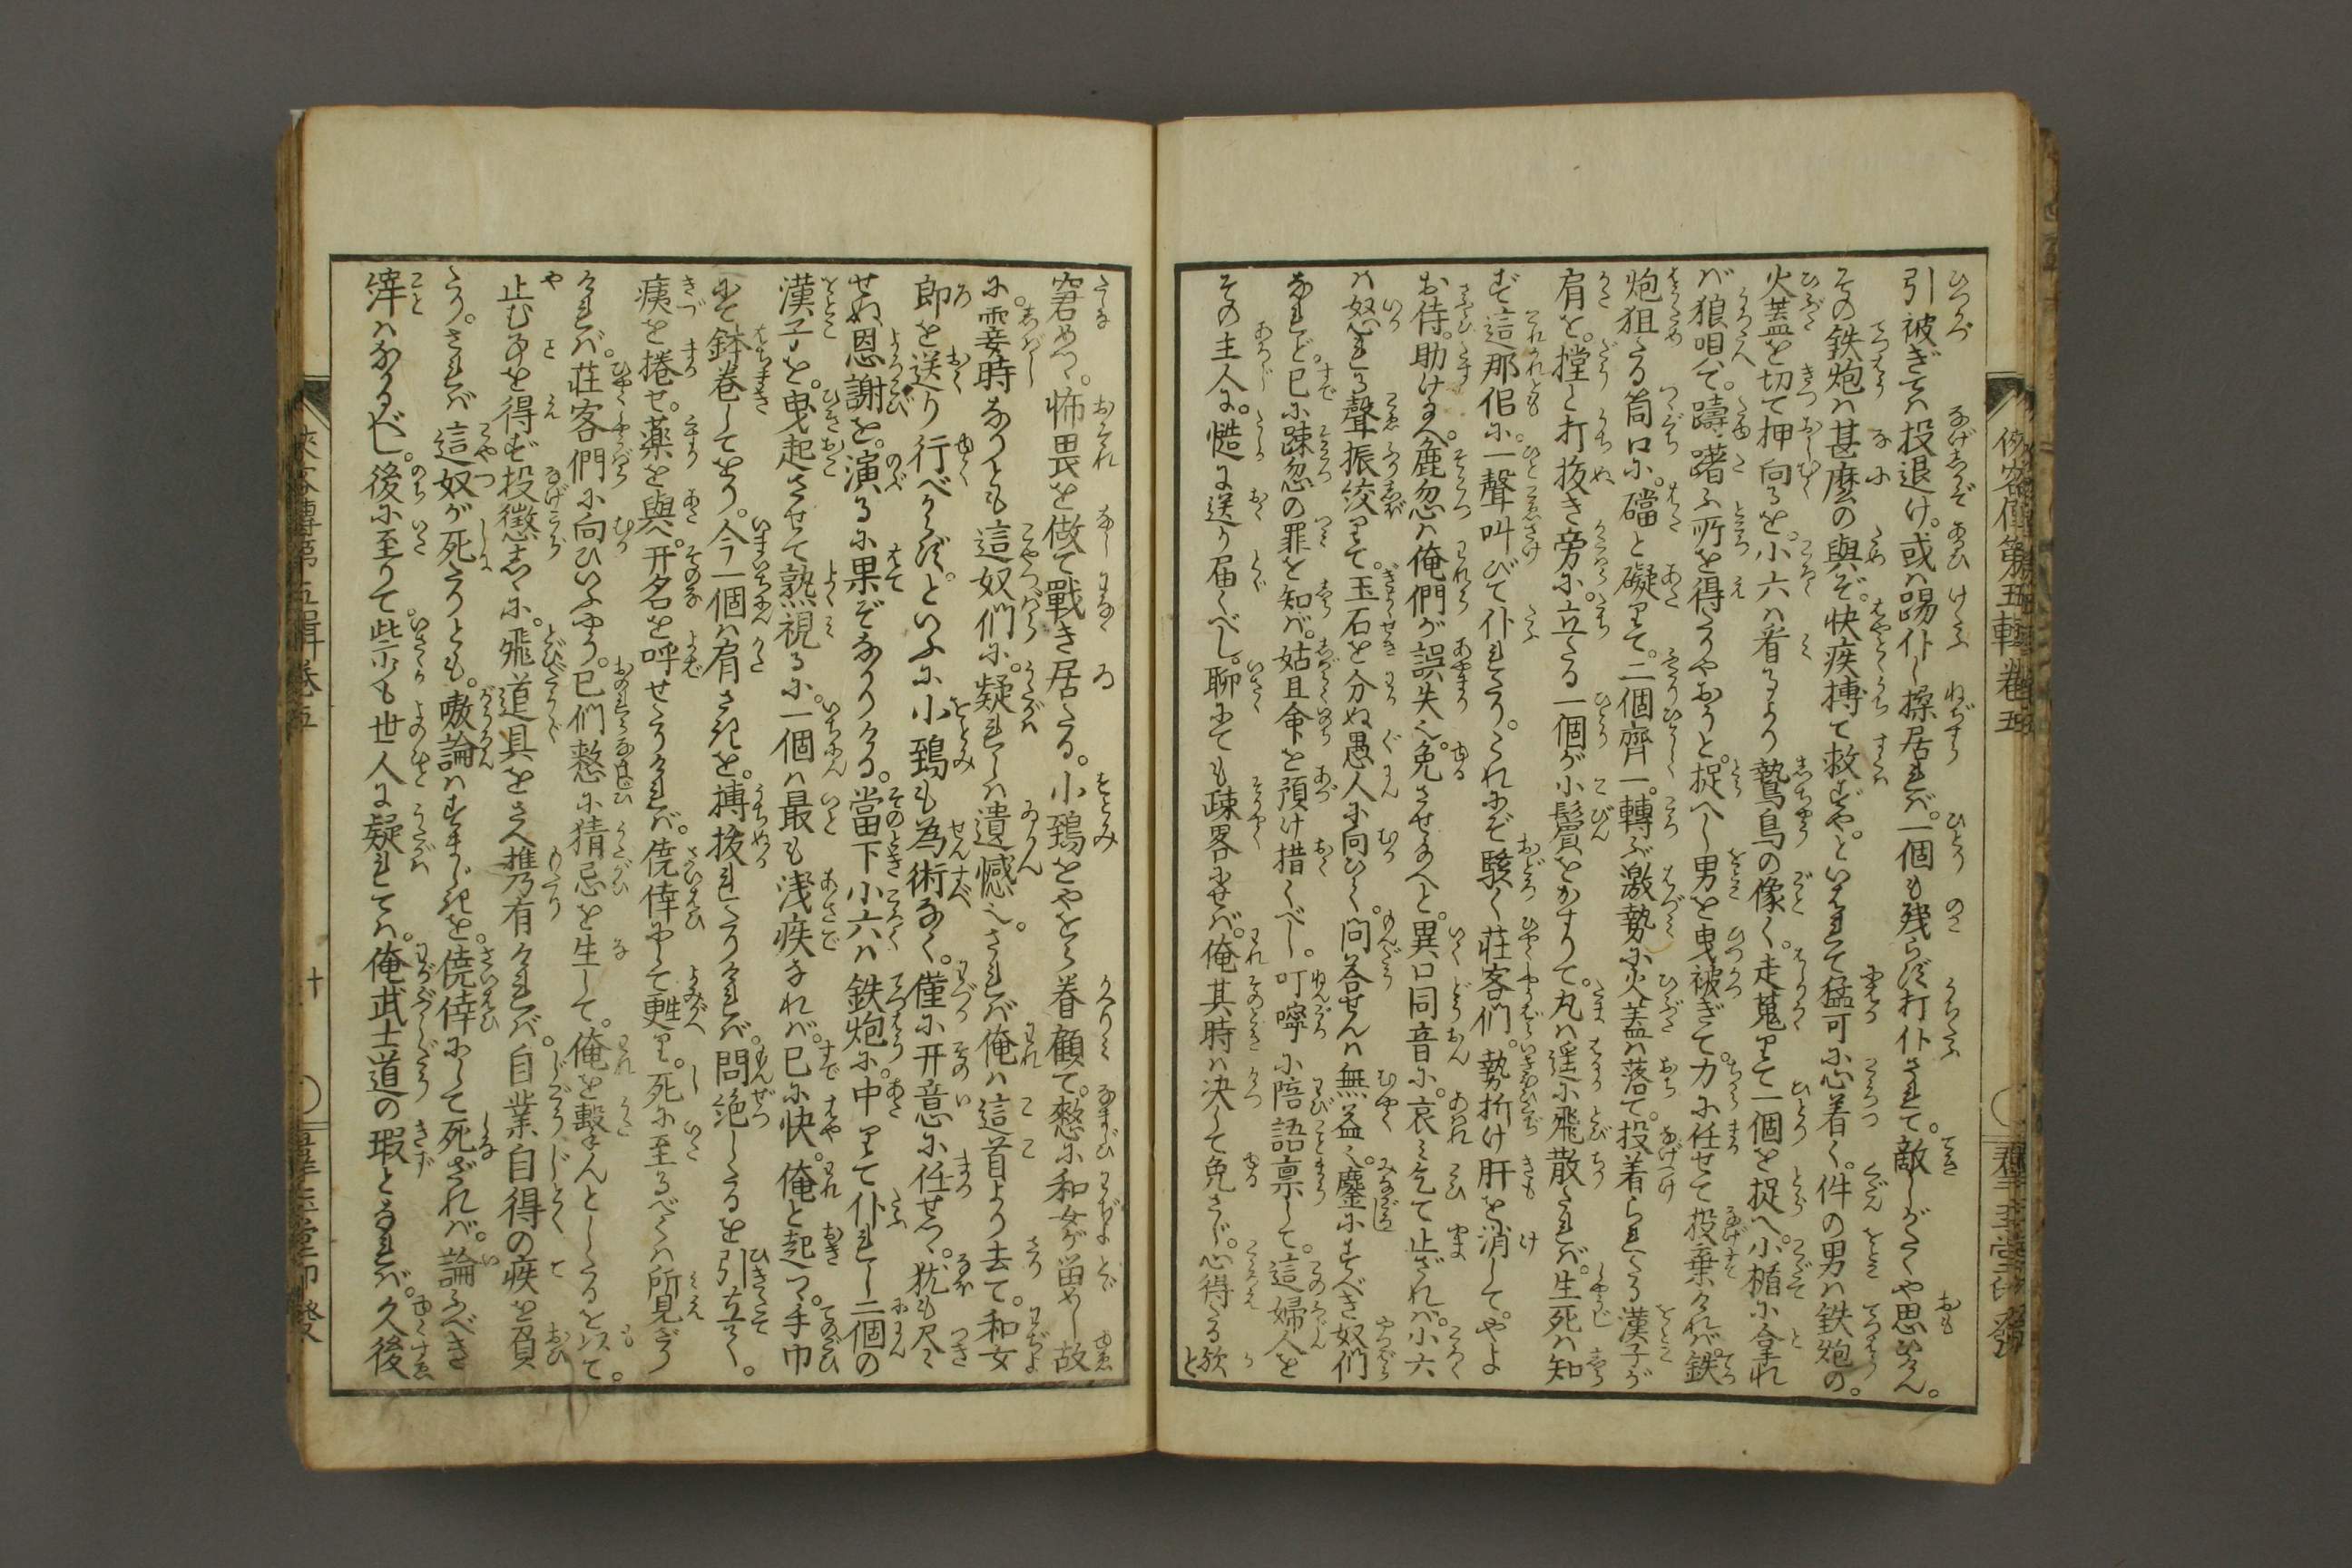 引被ぎては投退け。或は踢仆し操居れば。一個も残らず打仆されて。敵しがたくや思ひけん。
その鉄炮は甚麼の與ぞ。快疾搏て救ずや。といはれて猛可に心着く。件の男は鉄炮の。
火蓋を切て押向るを。小六は看るより鷙鳥の像く。走蒐りて一個を捉へ。小楯に拿れ
ば狼唄へて。躊躇ふ所を得たりやおうと。捉へし男を曳被ぎて。力に任せて投棄ければ。鉄
炮狙たる筒口に。礑と礙りて。二個齊一。轉ぶ激勢に火蓋は落て。投着られたる漢子が
肩を。摚と打抜き旁に。立たる一個が小鬢をかすりて。丸は遥に飛散たれば。生死は知
ず這那侶に。一聲叫びて仆れたり。これにぞ駭く荘客們。勢折け肝を消して。やよ
お待。助け給へ。麁忽は俺們が誤失也。免させ給へと。異口同音に。哀み乞て止ざれば。小六
は怒れる聲振絞りて。玉石を分ぬ愚人に向ひて。問答せんは無益也。鏖にすべき奴們
なれど。已に疎忽の罪を知ば。姑且命を預け措くべし。叮嚀に陪語稟して。這婦人を
その主人に。慥に送り届くべし。聊にても疎畧にせば。俺其時は决して免さじ。心得たる歟と
窘めつ。怖畏を做て戰き居たる。小鵐をやをら眷顧て。憗に和女が畄めし故
に。霎時なりとも這奴們に。疑れしは遺憾也。されば俺は這首より去て。和女
郎を送り行べからず。といふに小鵐も為術なく。僅に开意に任せつ。犹も尽
せぬ恩謝を。演るに果ぞなかりける。當下小六は鉄炮に。中りて仆れし二個の
漢子を。曳起させて熟視るに。一個は最も浅疾なれば。已に快。俺と起つ。手巾
にて鉢巻してをり。今一個は肩さきを。搏抜れたりければ。悶絶したるを引立て。
痍を捲せ。薬を與。开名を呼せたりければ。僥倖にして甦り。死に至るべくは所見ざり
ければ。荘客們に向ひいふやう。已們憗に猜忌を生して。俺を撃んとしたるを以て。
止む事を得ず投懲らしゝに。飛道具をさへ携有ければ。自業自得の疾を負
たり。されば這奴が死たりとも。嗷論はすまじきを。僥倖にして死ざれば。論ふべき
縡はなかるべし。後に至りて。些少も世人に疑れては。俺武士道の瑕となれば。久後
侠客傳第五輯巻五
十
群玉堂印發